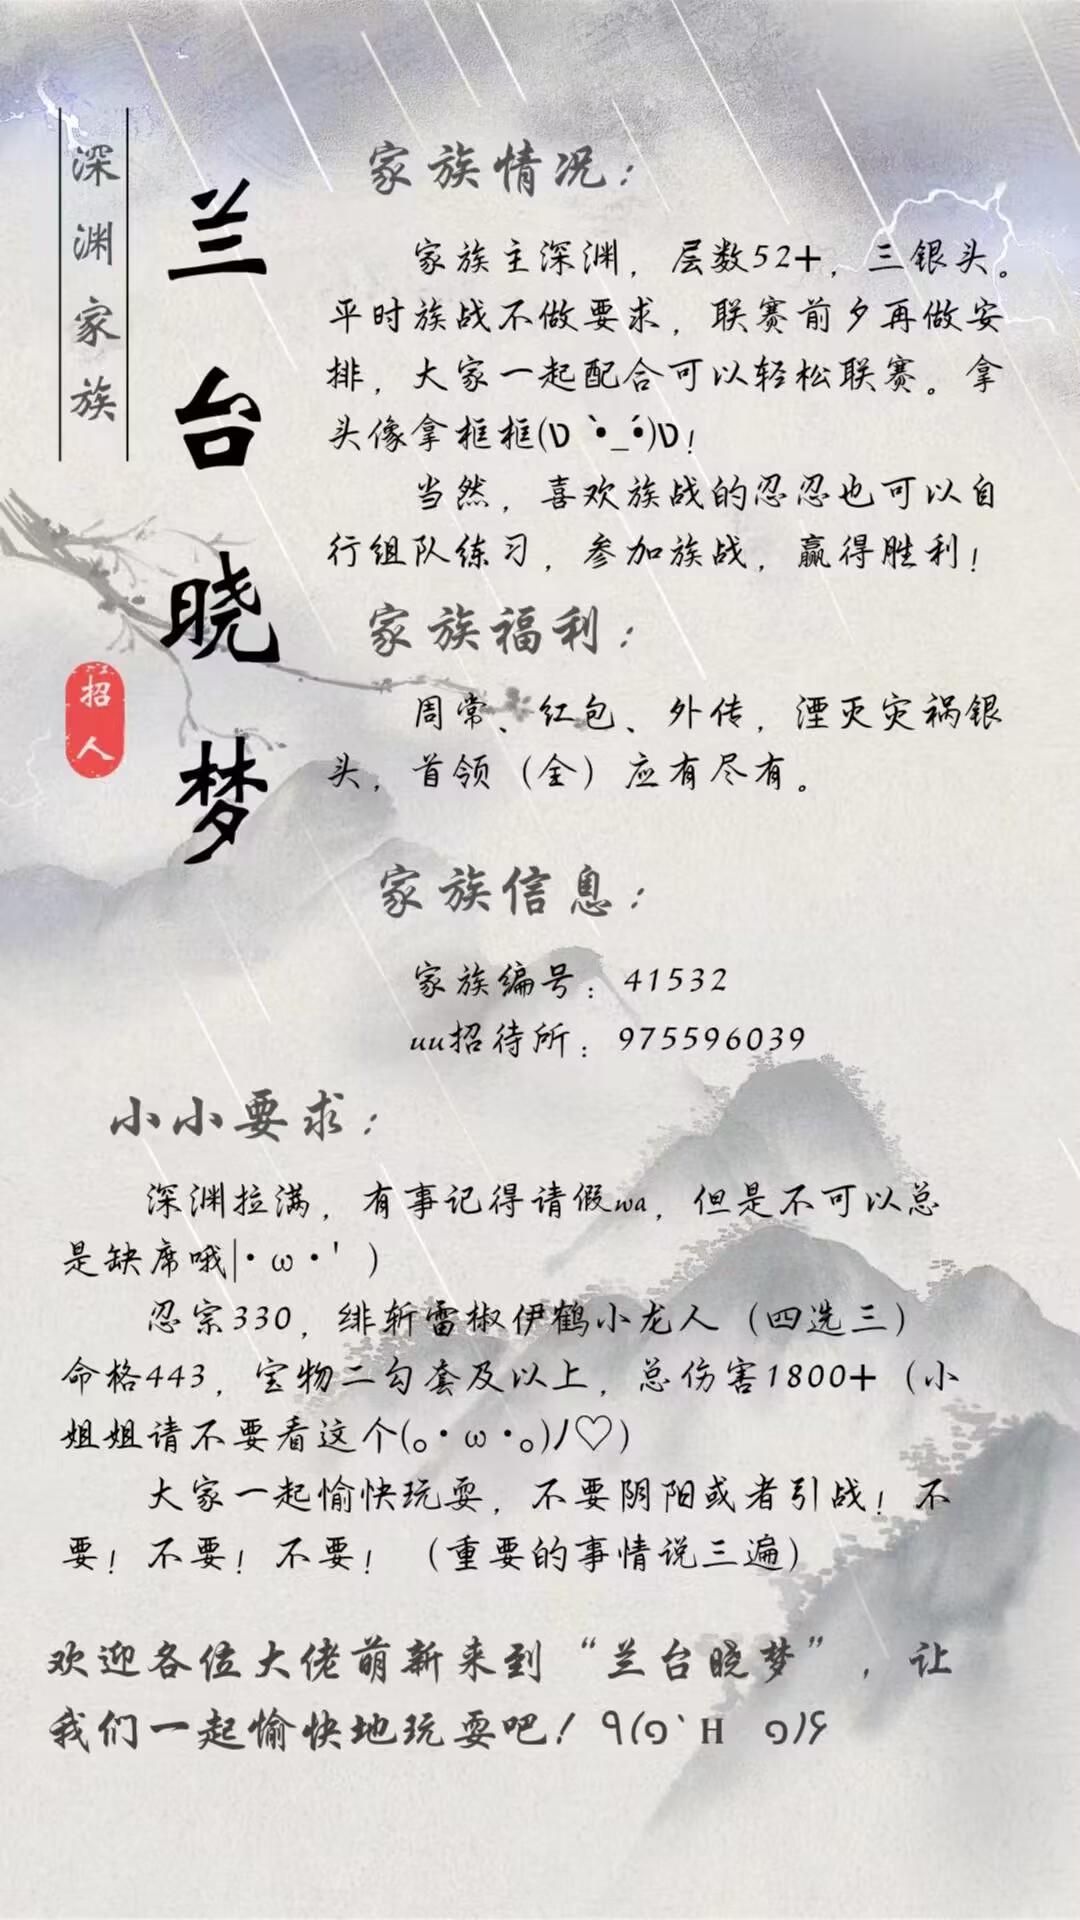 深渊家族
兰台晓梦
招人
家族情况：
家族主深渊，层数52+，三银头。
平时族战不做要求，联赛前夕再做安
排，大家一起配合可以轻松联赛。拿
头像拿框框(D•̀_•́)D！
当然，喜欢族战的忍忍也可以自
行组队练习，参加族战，赢得胜利！
家族福利：
周常、红包、外传，湮灭灾祸银
头，首领（全）应有尽有。
家族信息：
家族编号：41532
uu招待所：975596039
小小要求：
深渊拉满，有事记得请假wa，但是不可以总
是缺席哦|・ω・'）
忍宗330，绯斩雷椒伊鹤小龙人（四选三）
命格443，宝物二勾套及以上，总伤害1800+（小
姐姐请不要看这个(｡・ω・｡)ﾉ♡）
大家一起愉快玩耍，不要阴阳或者引战！不
要！不要！不要！（重要的事情说三遍）
欢迎各位大佬萌新来到“兰台晓梦”，让
我们一起愉快地玩耍吧！٩(๑`H ๑)۶